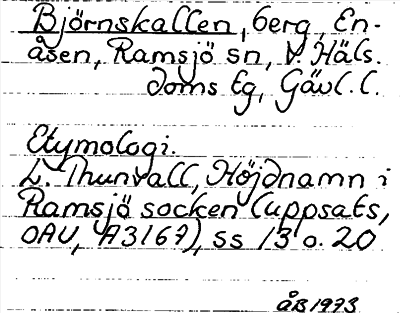 Björnskallen, berg, En-
åsen, Ramsjö sn, V. Häls.
doms tg, Gävl. l.
Etymologi.
L. Thunvall, Höjdnamn i
Ramsjö socken (uppsats,
OAU, A3167), ss 13 o. 20
åB 1973